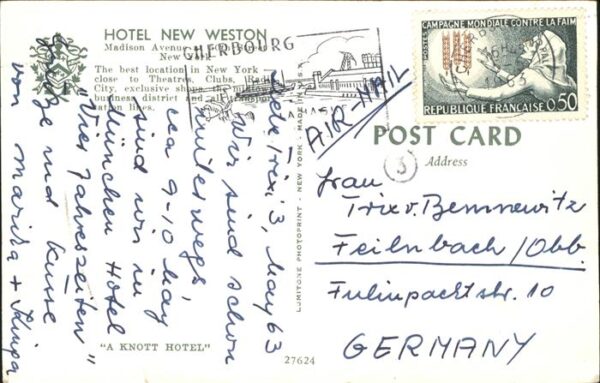 HOTEL NEW WESTON
Madison Avenue
New York
The best location in New York
close to Theatres, Clubs, Radio
City, exclusive shops, the midtown
business district and all transporta-
tion lines.
CHERBOURG
POSTES CAMPAGNE MONDIALE CONTRE LA FAIM
REPUBLIQUE FRANÇAISE 0,50
AIR-MAIL
POST CARD
Address
3
LUMITONE PHOTOPRINT - NEW YORK - MADE IN U.S.A.
3, May 63
Liebe Trixi
Wir sind schon
unterwegs
ca 9-10 May
sind wir in
München Hotel
"Vier Jahreszeiten"
Grüße und Küsse
von Marika +
Frau
Trix v. Bennewitz
Feilnbach/Obb.
10
GERMANY
"A KNOTT HOTEL"
27624